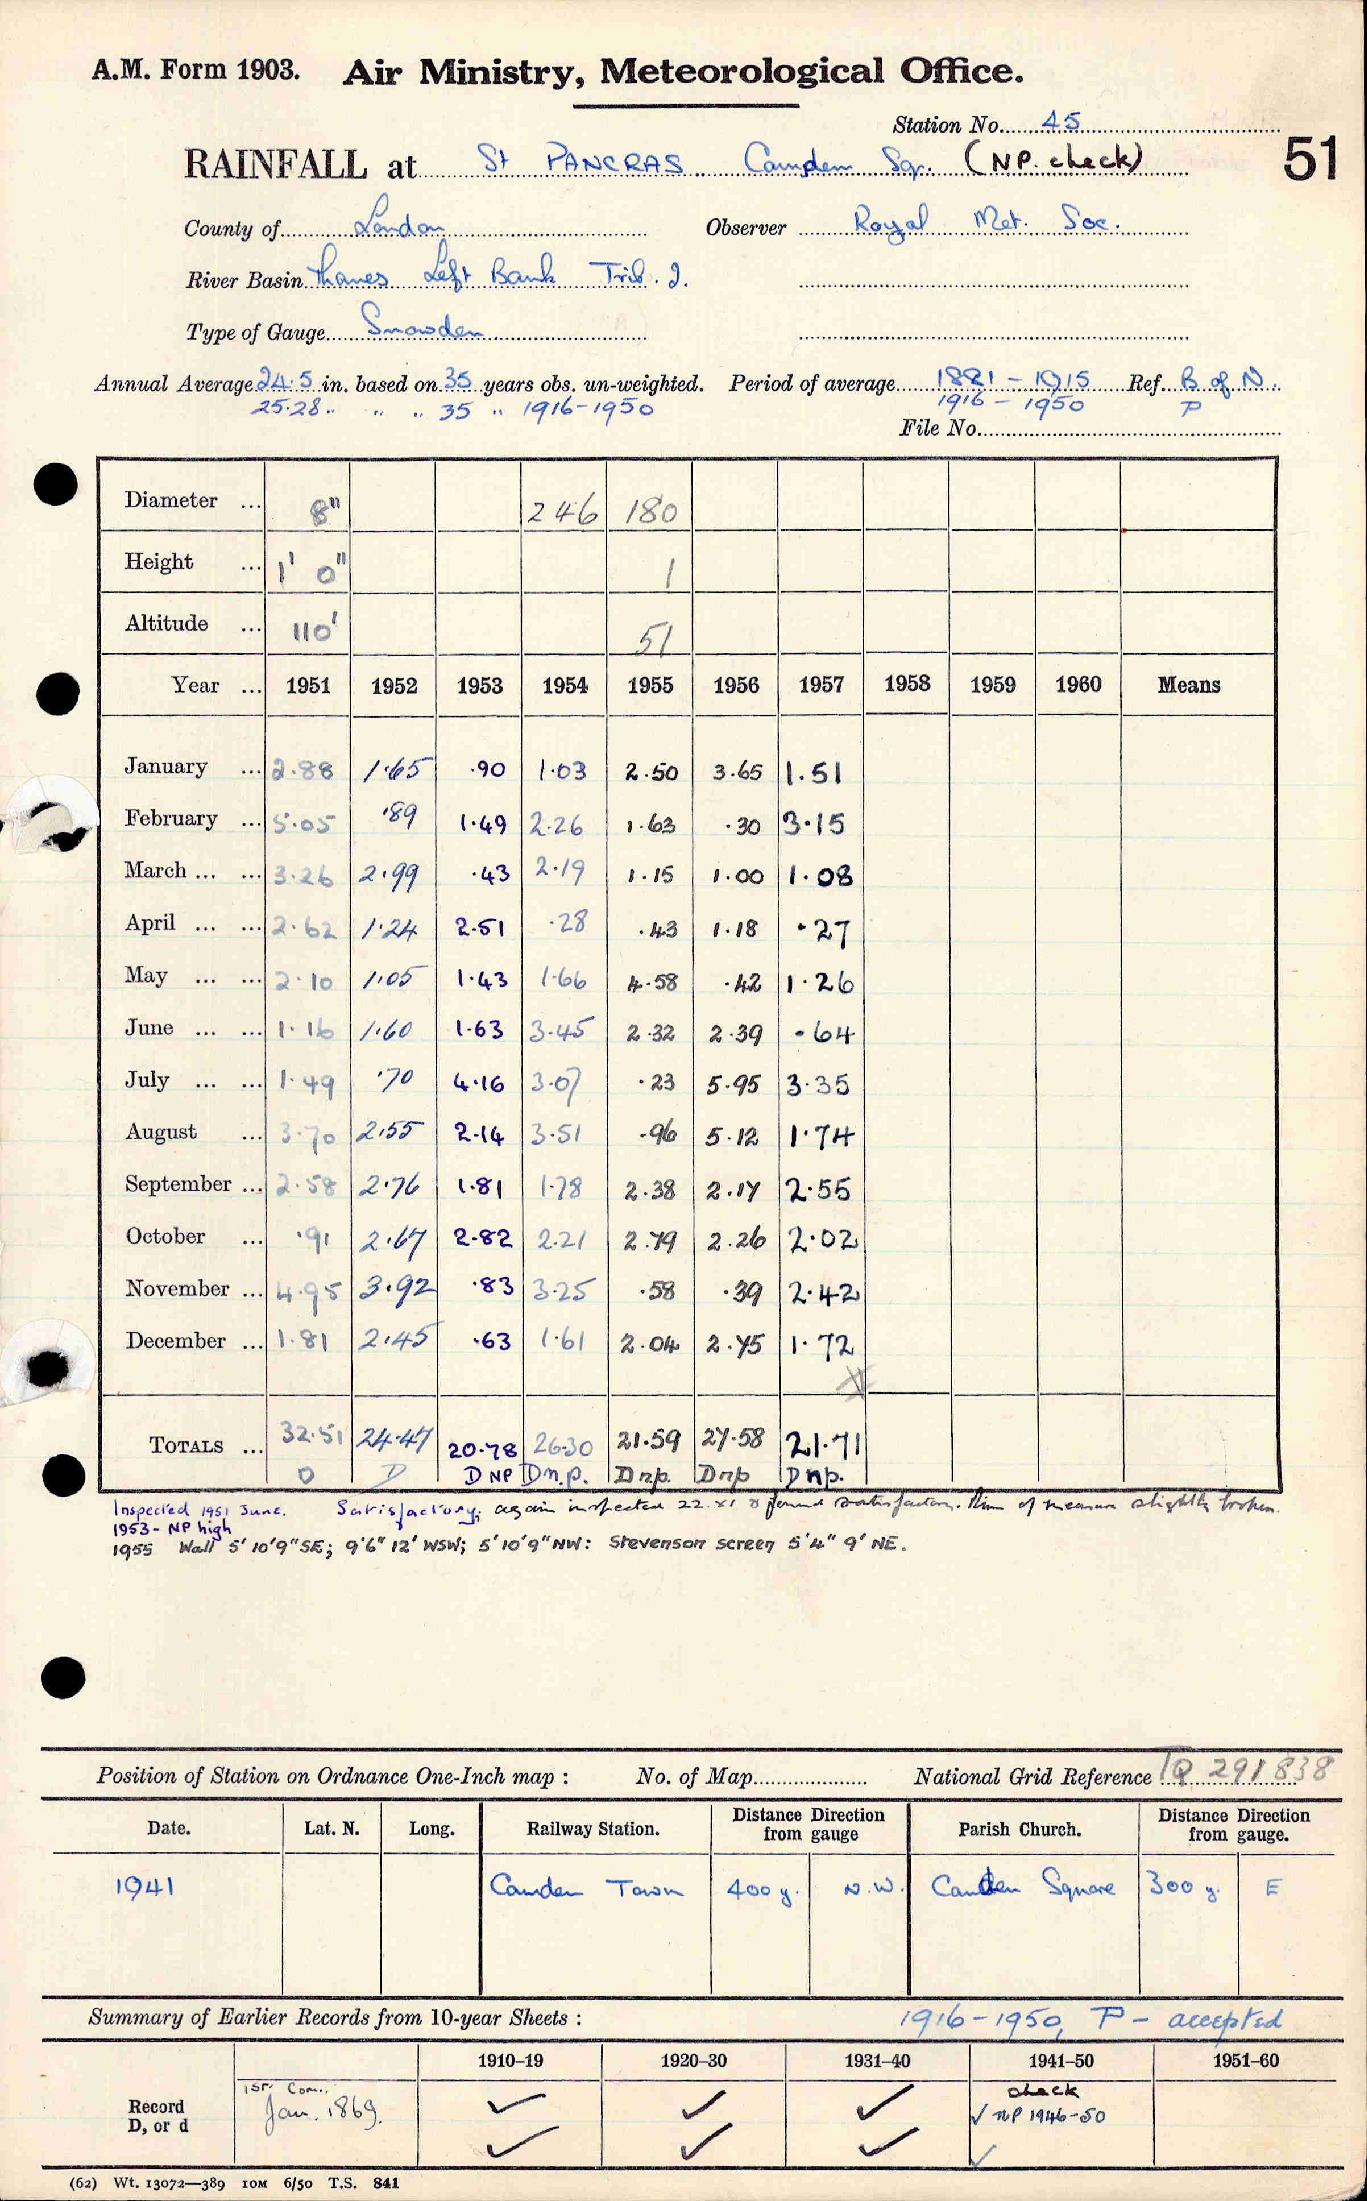 A.M. Form 1903. Air Ministry, Meteorological Office.
Station No. 45
RAINFALL at St PANCRAS Camden Sqr. (NP. check) 51
County of London Observer Royal Met. Soc.
River Basin Thames Left Bank Trib. 2.
Type of Gauge Snowden
Annual Average 24.5 in. based on 35 years obs. un-weighted. Period of average 1881-1915 Ref. B of N.
25.28 " " " 35 " 1916-1950 1916-1950 P
File No.
Diameter ... 8" 246 180
Height ... 1' 0" 1
Altitude ... 110' 51
Year ... 1951 1952 1953 1954 1955 1956 1957 1958 1959 1960 Means
January ... 2.88 1.65 .90 1.03 2.50 3.65 1.51
February ... 5.05 .89 1.49 2.26 1.63 .30 3.15
March ... ... 3.26 2.99 .43 2.19 1.15 1.00 1.08
April ... ... 2.62 1.24 2.51 .28 .43 1.18 .27
May ... ... 2.10 1.05 1.43 1.66 4.58 .42 1.26
June ... ... 1.16 1.60 1.63 3.45 2.32 2.39 .64
July ... ... 1.49 .70 4.16 3.07 .23 5.95 3.35
August ... 3.70 2.55 2.14 3.51 .96 5.12 1.74
September ... 2.58 2.76 1.81 1.78 2.38 2.17 2.55
October ... .91 2.67 2.82 2.21 2.79 2.26 2.02
November ... 4.95 3.92 .83 3.25 .58 .39 2.42
December ... 1.81 2.45 .63 1.61 2.04 2.75 1.72
TOTALS ... 32.51 24.47 20.78 26.30 21.59 27.58 21.71
D D D NP D n.p. D n.p. D n p D n p.
Inspected 1951 June. Satisfactory; again inspected 22.XI & found satisfactory. Rim of measure slightly broken.
1953 - NP high
1955 Wall 5' 10'9" SE; 9'6" 12' WSW; 5' 10'9" NW: Stevenson screen 5'4" 9' NE.
Position of Station on Ordnance One-Inch map : No. of Map National Grid Reference TQ 291838
Date. Lat. N. Long. Railway Station. Distance Direction from gauge Parish Church. Distance Direction from gauge.
1941 Camden Town 400 y. N.W. Camden Square 300 y. E
Summary of Earlier Records from 10-year Sheets : 1916-1950, P - accepted
1910–19 1920–30 1931–40 1941–50 1951–60
Record D, or d 1st. Com. Jan. 1869. ✓ ✓ ✓ check ✓ NP 1946-50
✓ ✓ ✓ ✓
(62) Wt. 13072—389 10M 6/50 T.S. 841